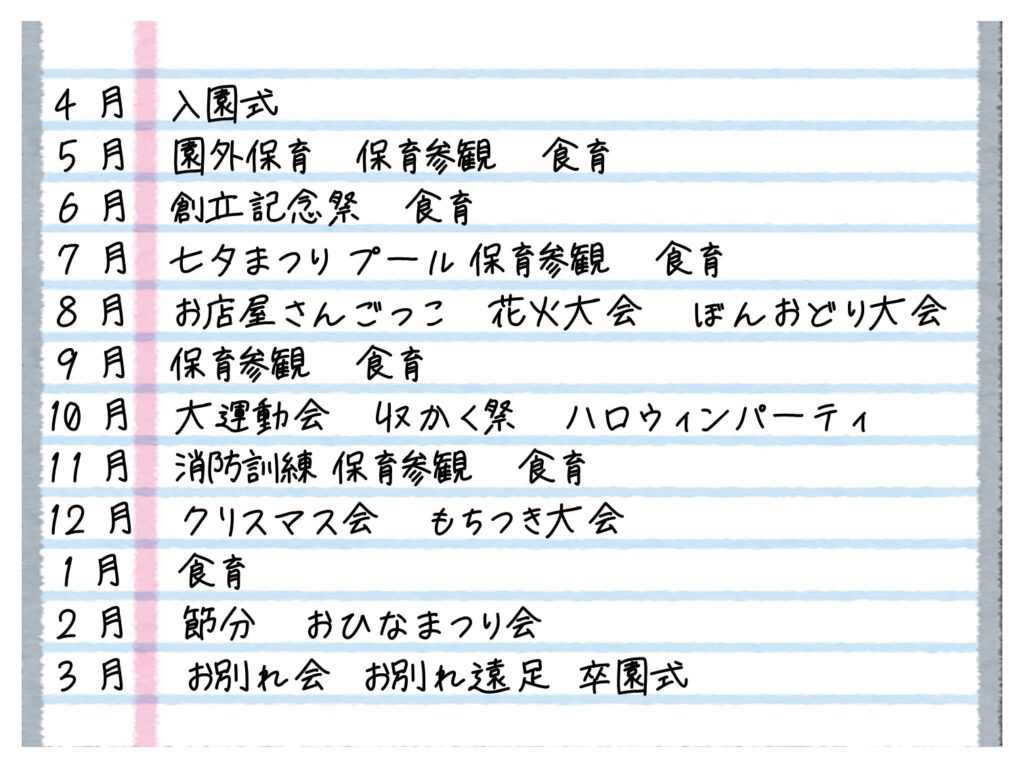 4月 入園式
5月 園外保育 保育参観 食育
6月 創立記念祭 食育
7月 七夕まつり プール 保育参観 食育
8月 お店屋さんごっこ 花火大会 ぼんおどり大会
9月 保育参観 食育
10月 大運動会 収かく祭 ハロウィンパーティ
11月 消防訓練 保育参観 食育
12月 クリスマス会 もちつき大会
1月 食育
2月 節分 おひなまつり会
3月 お別れ会 お別れ遠足 卒園式